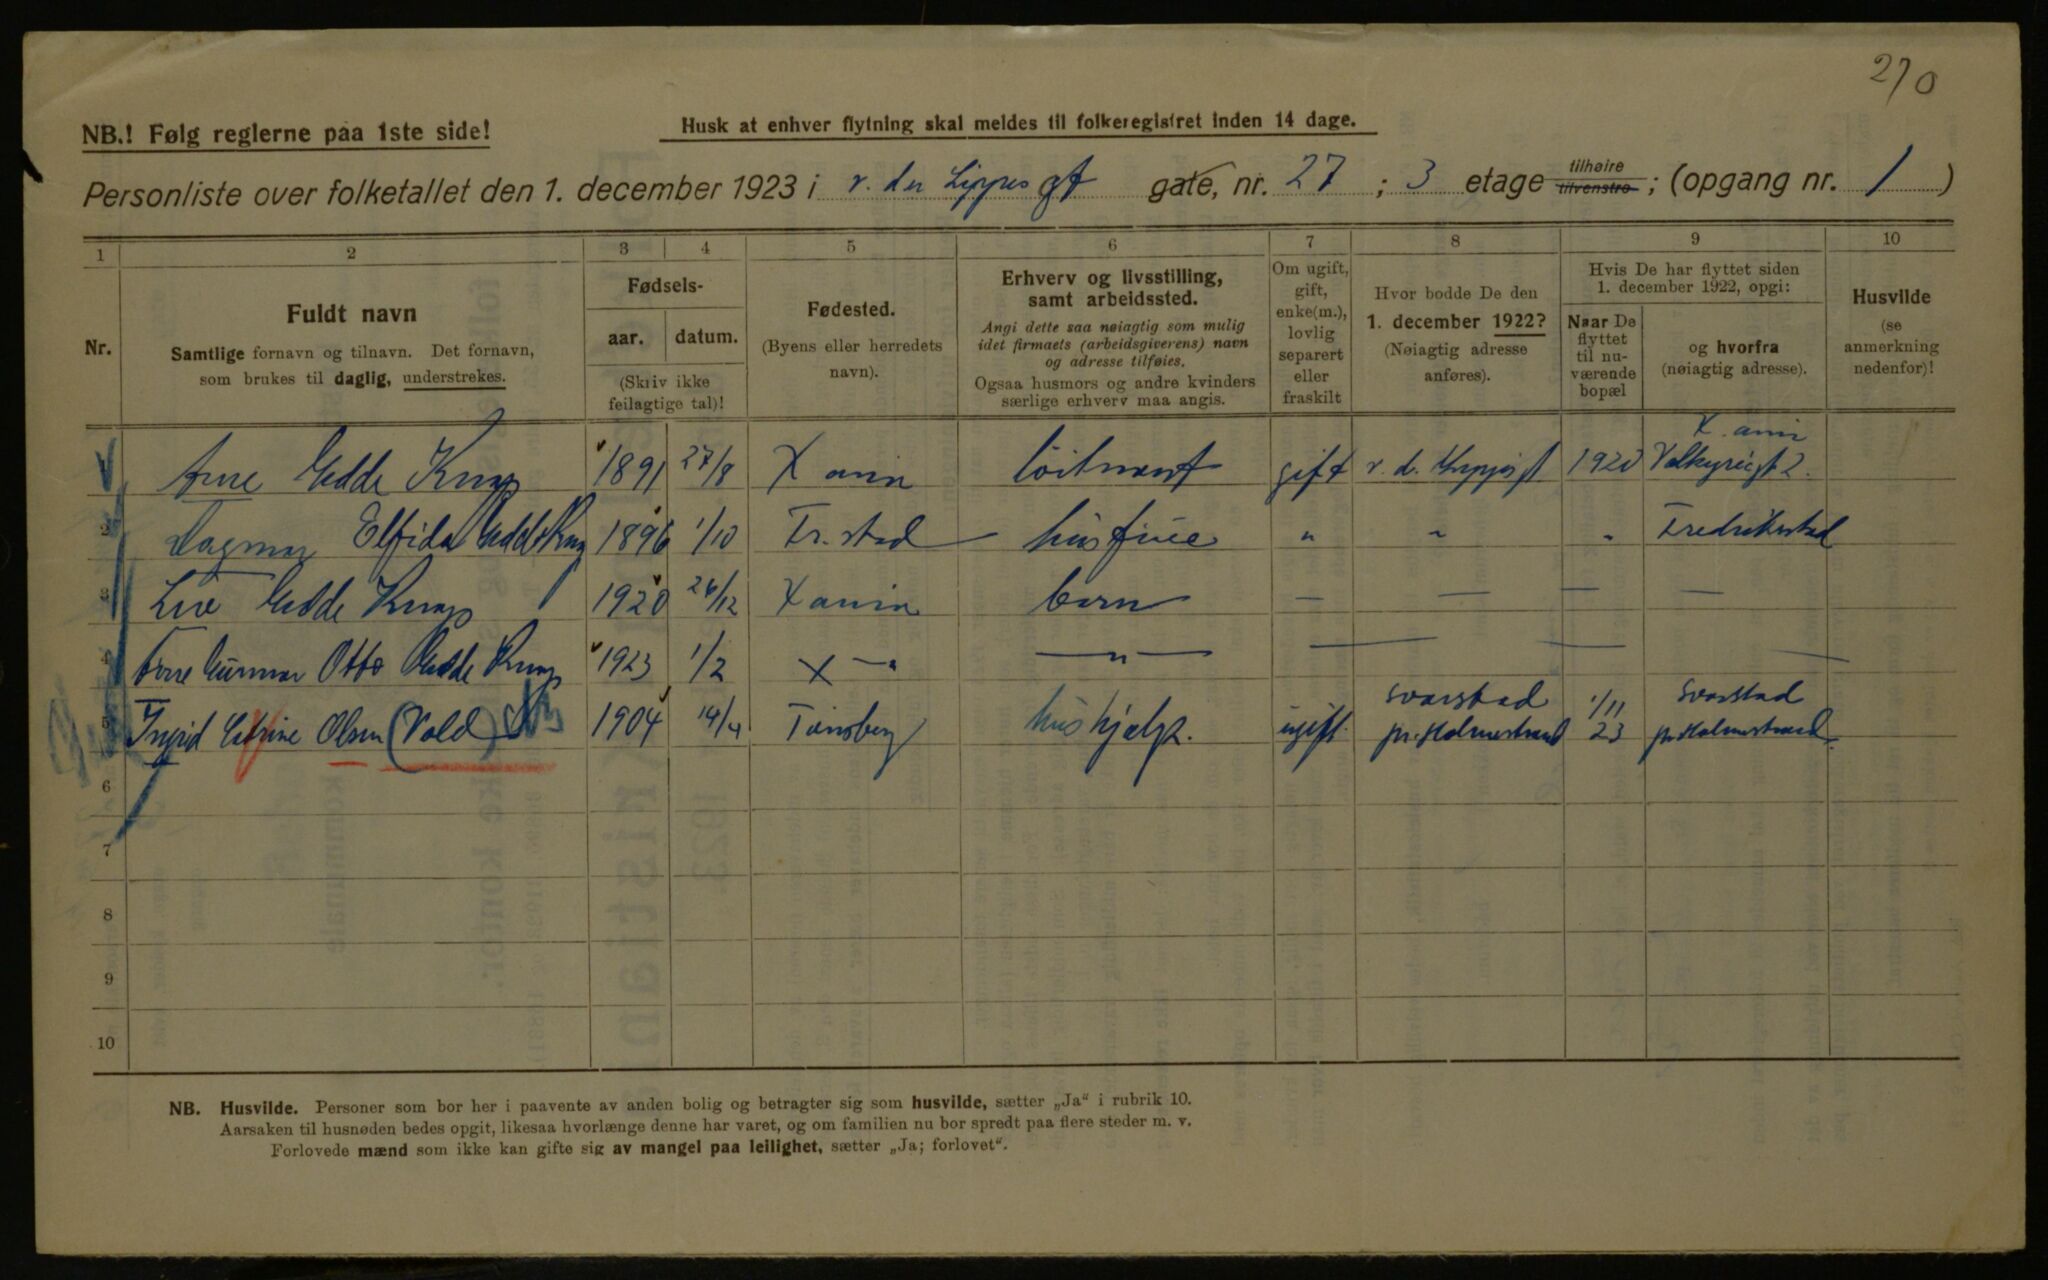 270
NB.! Følg reglerne paa 1ste side!
Husk at enhver flytning skal meldes til folkeregistret inden 14 dage.
Personliste over folketallet den 1. december 1923 i v. der Lippes gt gate, nr. 27 ; 3 etage tilhøire tilvenstre ; (opgang nr. 1 )
1 2 3 4 5 6 7 8 9 10
Nr.
Fuldt navn
Samtlige fornavn og tilnavn. Det fornavn,
som brukes til daglig, understrekes.
Fødsels-
aar. datum.
(Skriv ikke
feilagtige tal)!
Fødested.
(Byens eller herredets
navn).
Erhverv og livsstilling,
samt arbeidssted.
Angi dette saa nøiagtig som mulig
idet firmaets (arbeidsgiverens) navn
og adresse tilføies.
Ogsaa husmors og andre kvinders
særlige erhverv maa angis.
Om ugift,
gift,
enke(m.),
lovlig
separert
eller
fraskilt
Hvor bodde De den
1. december 1922?
(Nøiagtig adresse
anføres).
Hvis De har flyttet siden
1. december 1922, opgi:
Naar De
flyttet
til nu-
værende
bopæl
og hvorfra
(nøiagtig adresse).
Husvilde
(se
anmerkning
nedenfor)!
Arne Gedde Krag 1891 27/8 X ania løitnant gift v. d. Lippes gt 1920 X. ania Valkyriegt 2.
2 Dagmar Elfida Gedde Krag 1896 1/10 Fr. stad husfrue " " " Fredrikstad
3 Gedde Krag 1920 26/12 X ania barn — — — —
4 Arne Gunnar Otto Gedde Krag 1923 1/2 X — " — " — — —
5 Ingrid Olsen (Vold) 1904 14/4 Tønsberg hushjælp. ugift. Svarstad pr. Holmestrand 1/11 23 Svarstad pr. Holmestrand.
6
7
8
9
10
NB. Husvilde. Personer som bor her i paavente av anden bolig og betragter sig som husvilde, sætter „Ja“ i rubrik 10.
Aarsaken til husnøden bedes opgit, likesaa hvorlænge denne har varet, og om familien nu bor spredt paa flere steder m. v.
Forlovede mænd som ikke kan gifte sig av mangel paa leilighet, sætter „Ja; forlovet“.